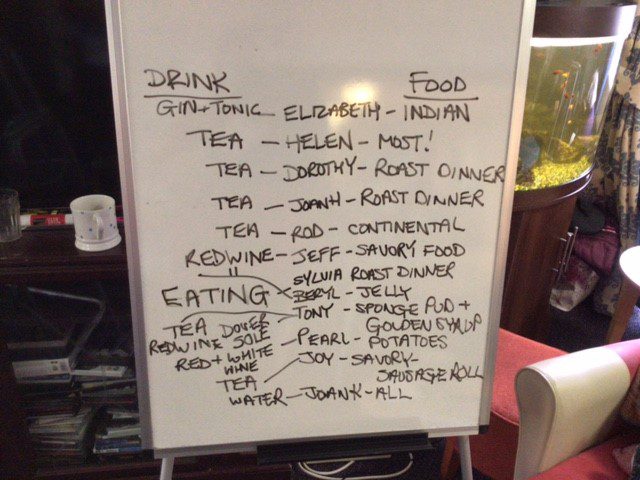 DRINK FOOD
GIN + TONIC - ELIZABETH - INDIAN
TEA - HELEN - MOST!
TEA - DOROTHY - ROAST DINNER
TEA - JOANH - ROAST DINNER
TEA - ROD - CONTINENTAL
RED WINE - JEFF - SAVORY FOOD
SYLVIA ROAST DINNER
EATING BERYL - JELLY
TONY - SPONGE PUD +
TEA DOVER GOLDEN SYRUP
REDWINE SOLE - PEARL - POTATOES
RED + WHITE
WINE JOY - SAVORY -
TEA SAUSAGE ROLL
WATER - JOANK - ALL